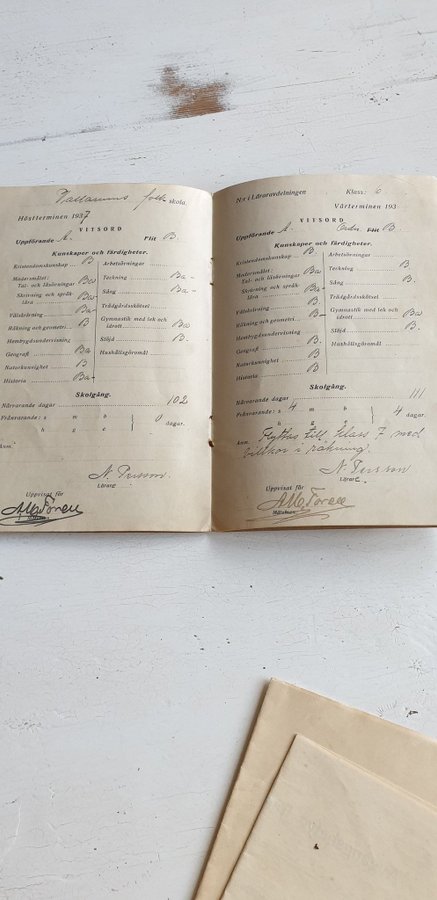 folk skola.
Höstterminen 1937
VITSORD
Uppförande A. Flit B.
Kunskaper och färdigheter.
Kristendomskunskap B
Modersmålet:
Tal- och läsövningar Ba
Skrivning och språk-
lära Ba
Välskrivning Ba-
Räkning och geometri B
Hembygdsundervisning
Geografi Ba
Naturkunnighet B
Historia Ba-
Arbetsövningar
Teckning Ba-
Sång Ba-
Trädgårdsskötsel
Gymnastik med lek och
idrott Ba
Slöjd B.
Hushållsgöromål
Skolgång.
Närvarande dagar 102
Frånvarande: s m b 0 dagar.
h g e
Anm.
N. Persson.
Lärare.
Uppvisat för
N:r i Läraravdelningen Klass: 6
Vårterminen 193
VITSORD
Uppförande A. Ordn. Flit B.
Kunskaper och färdigheter.
Kristendomskunskap B.
Modersmålet:
Tal- och läsövningar Ba
Skrivning och språk-
lära Ba-
Välskrivning B.
Räkning och geometri B.
Hembygdsundervisning
Geografi B.
Naturkunnighet B.
Historia B.
Arbetsövningar
Teckning B.
Sång B.
Trädgårdsskötsel
Gymnastik med lek och
idrott B.
Slöjd B.
Hushållsgöromål
Skolgång.
Närvarande dagar 111
Frånvarande: s 4 m b 4 dagar.
h g e
Anm. Flyttas till klass 7 med
villkor i räkning.
N. Persson
Lärare.
Uppvisat för
Målsman.